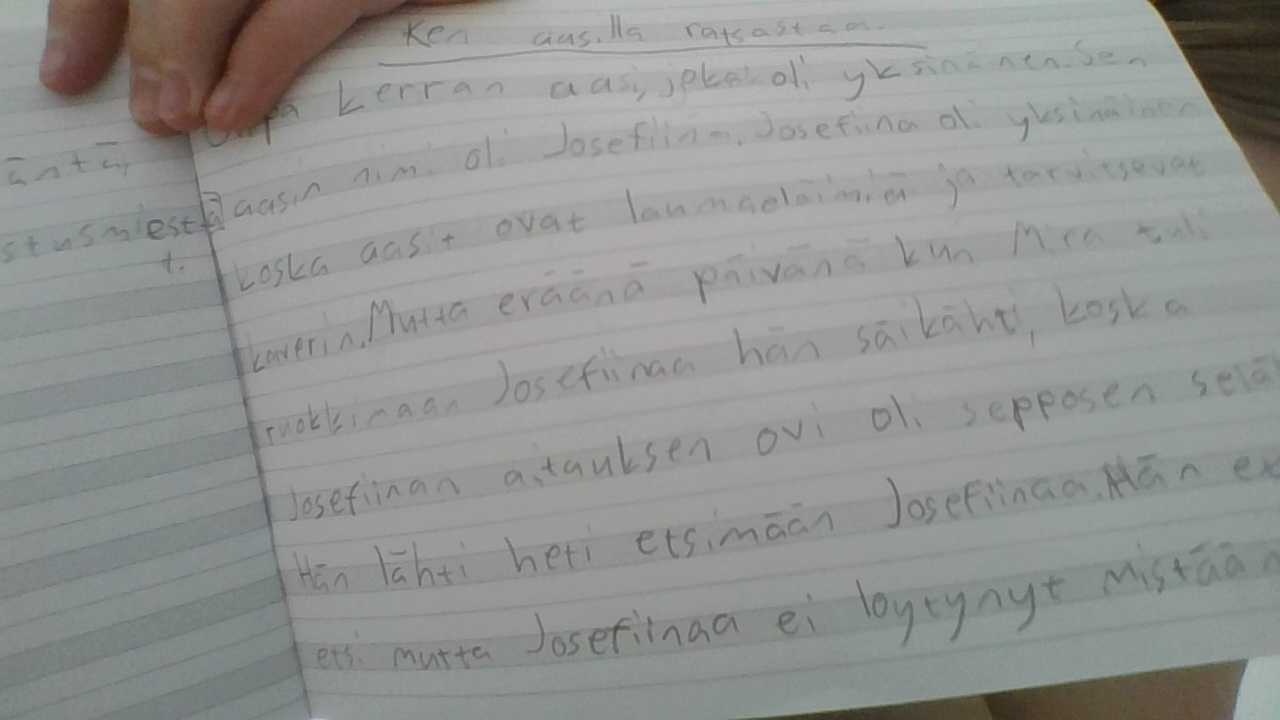 Ken aasilla ratsastaa.
kerran aasi, joka oli yksinäinen. Sen
aasin nimi oli Josefiina. Josefiina oli yksinäinen
koska aasit ovat laumaeläimiä ja tarvitsevat
kaverin. Mutta eräänä päivänä kun Mira tuli
ruokkimaan Josefiinaa hän säikähti, koska
Josefiinan aitauksen ovi oli sepposen selä
Hän lähti heti etsimään Josefiinaa. Hän
etsi mutta Josefiinaa ei löytynyt mistään
äntä,
stusmiestä
t.